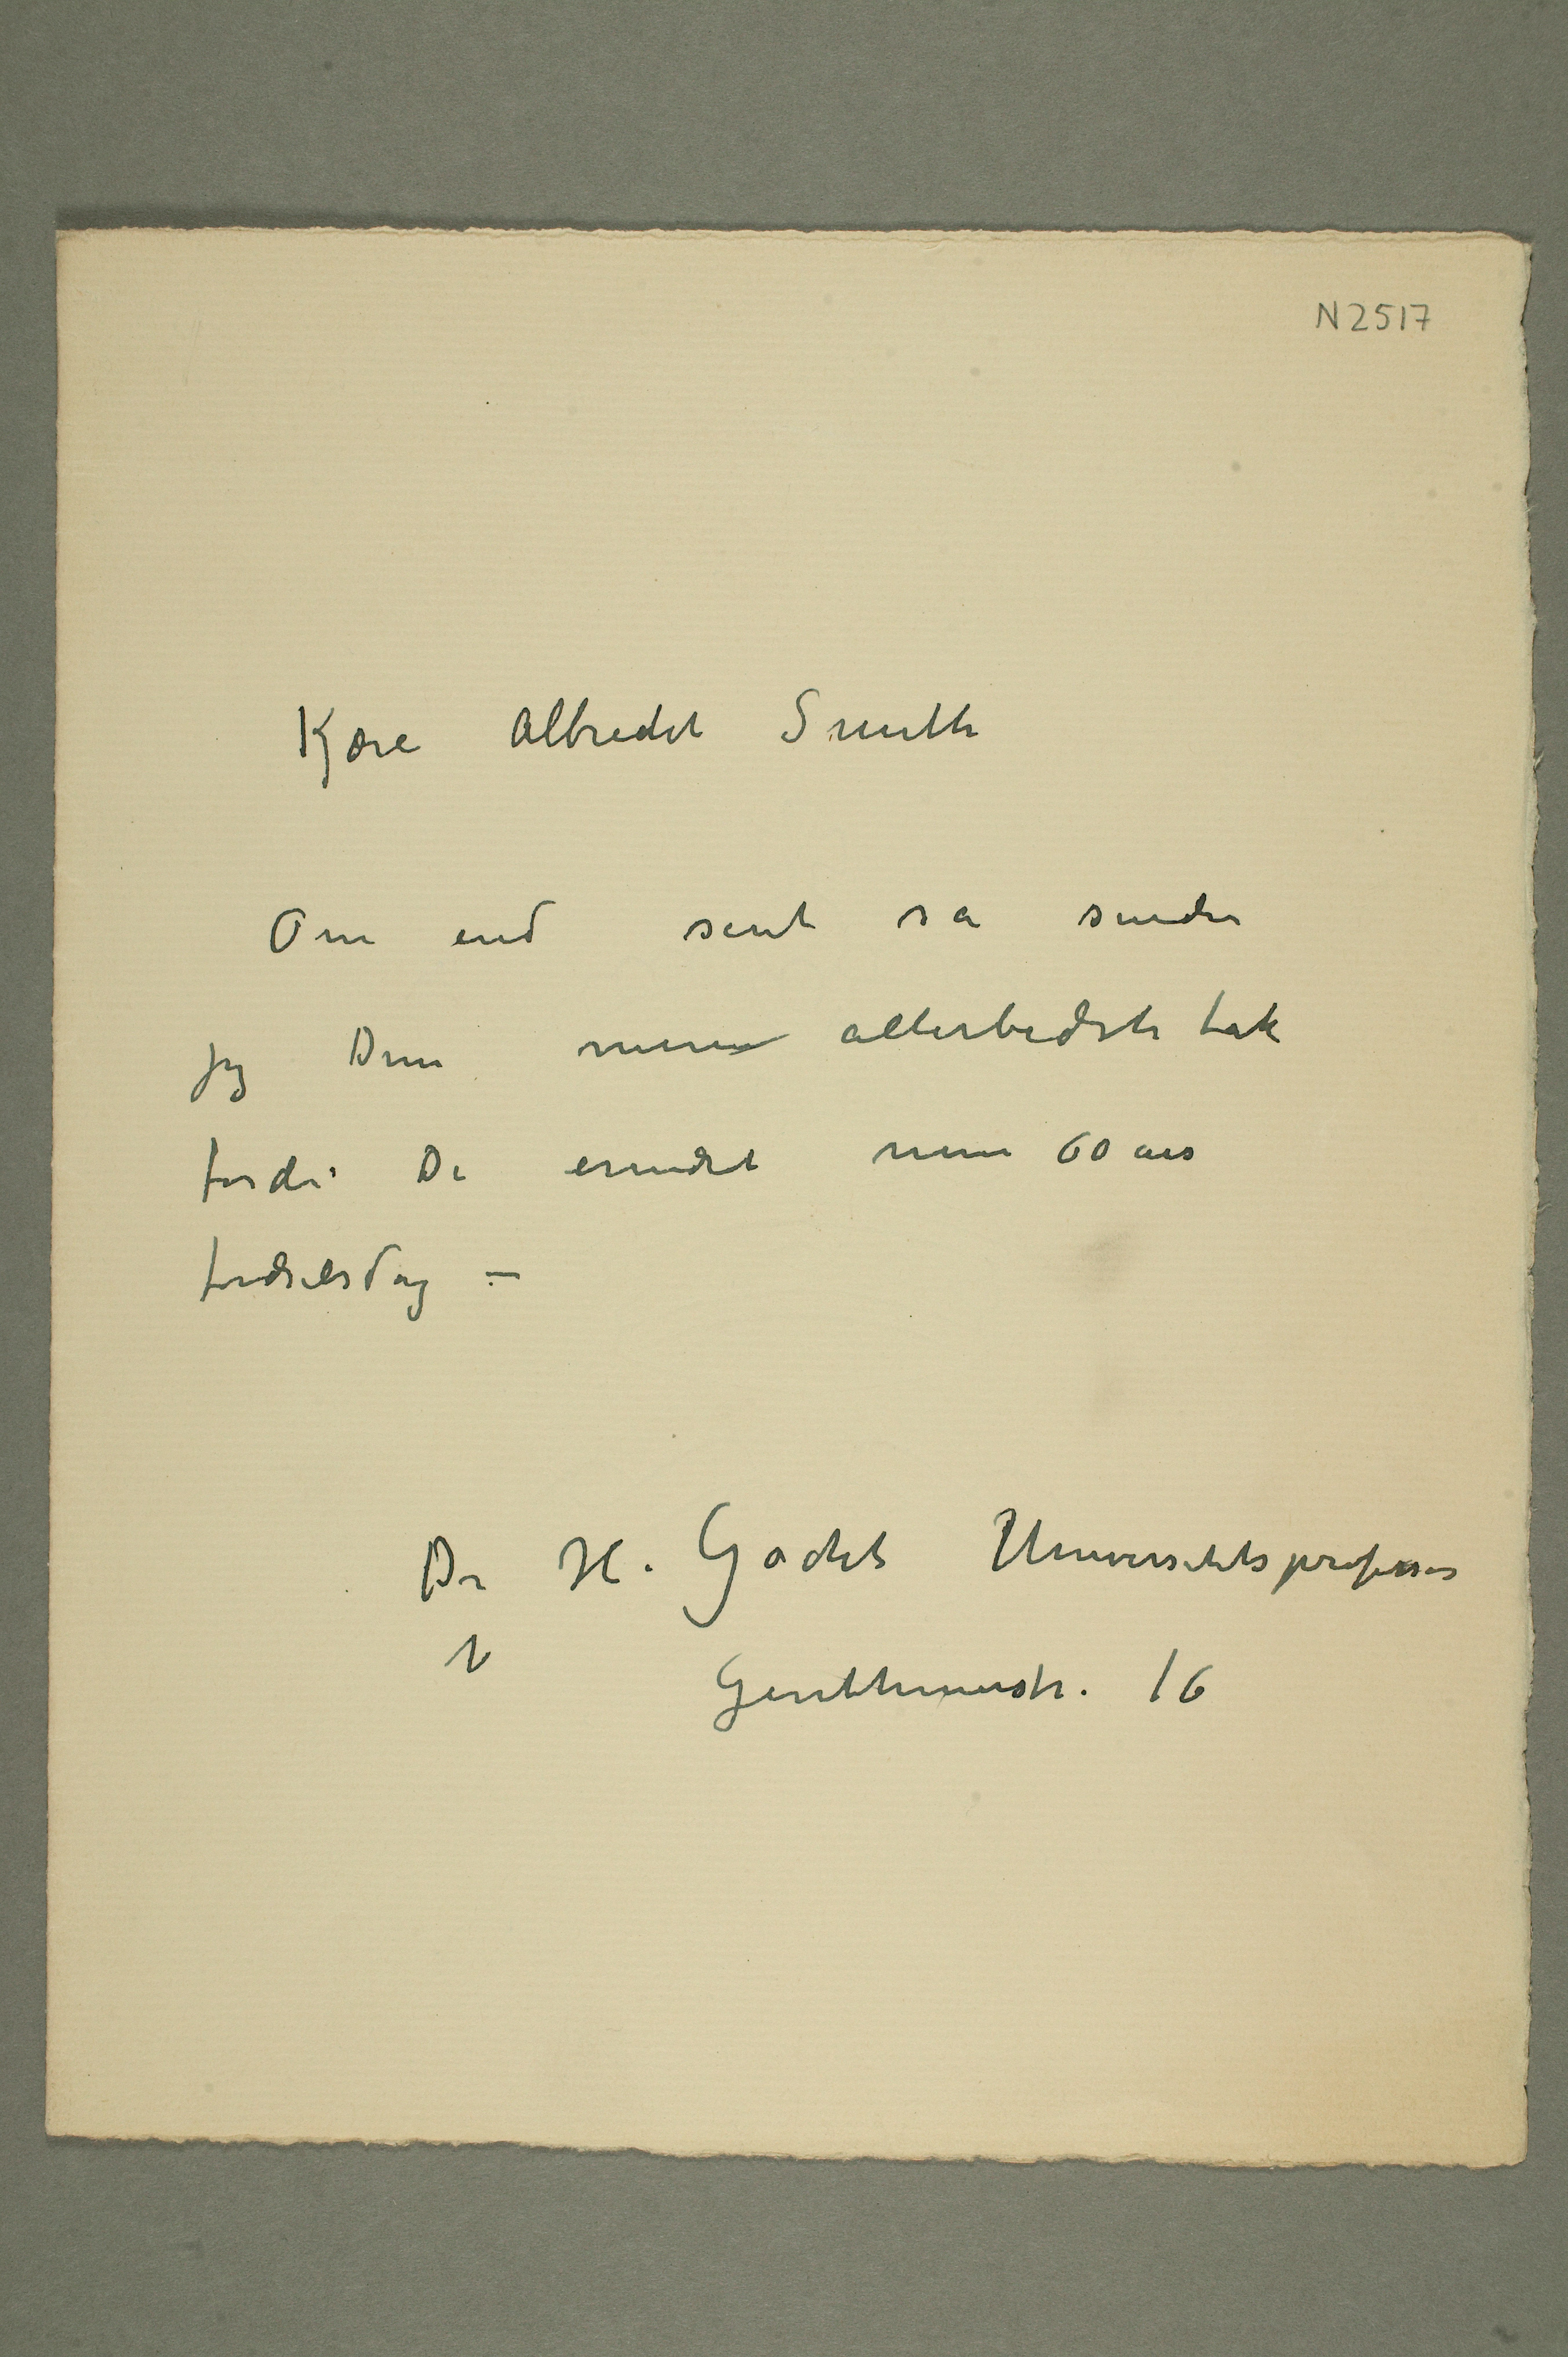 N 2517
Kjære Albrecht Smith
Om end sent så sender
jeg Dem min allerbedste tak
fordi De erindret min 60 års
fødselsdag –
Dr H. Gocht Universitetsprofessor
Genthinerstr. 16